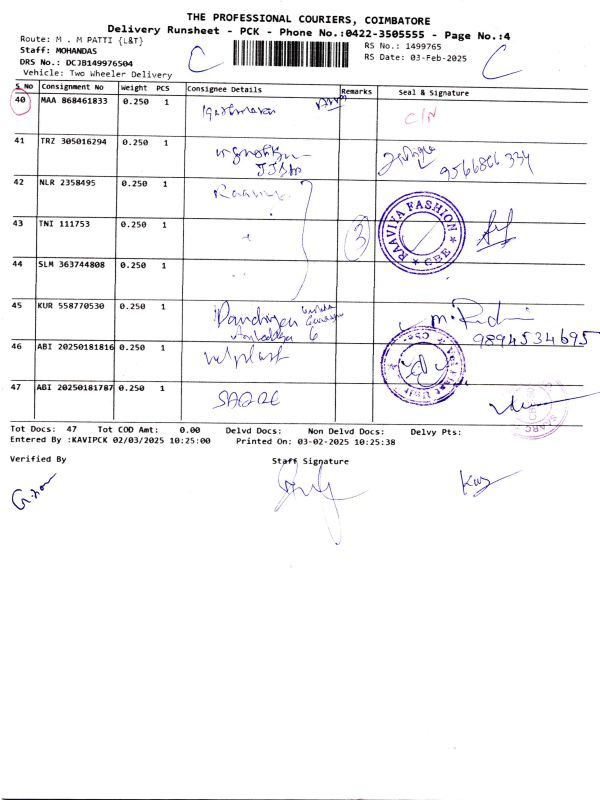 THE PROFESSIONAL COURIERS, COIMBATORE
Delivery Runsheet - PCK - Phone No.:0422-3505555 - Page No.:4
Route: M . M PATTI {L&T}
RS No.: 1499765
Staff: MOHANDAS
RS Date: 03-Feb-2025
DRS No.: DCJB149976504
Vehicle: Two Wheeler Delivery
C
C
S No Consignment No Weight PCS Consignee Details Remarks Seal & Signature
40 MAA 868461833 0.250 1 C/N
41 TRZ 305016294 0.250 1 9566866334
42 NLR 2358495 0.250 1
43 TNI 111753 0.250 1 3 RAAVIVA FASHION CBE
44 SLM 363744808 0.250 1
45 KUR 558770530 0.250 1 6 9894534695
46 ABI 20250181816 0.250 1 velplast
47 ABI 20250181787 0.250 1
Tot Docs: 47 Tot COD Amt: 0.00 Delvd Docs: Non Delvd Docs: Delvy Pts:
Entered By :KAVIPCK 02/03/2025 10:25:00 Printed On: 03-02-2025 10:25:38
Verified By Staff Signature